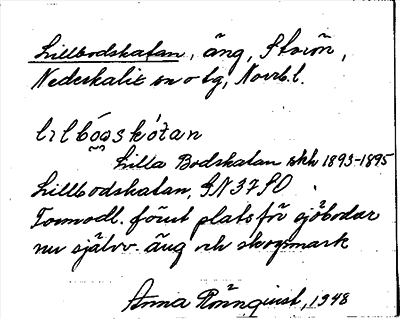 Lillbodskatan, äng, Storön,
Nederkalix sn o tg, Norrb. l.
lılbóaskòtan
Lilla Bodskatan skh 1893-1895
Lillbodskatan, GN 37 SO
Förmodl. förut plats för sjöbodar
nu självv. äng och skogsmark
Anna Rönnquist, 1948